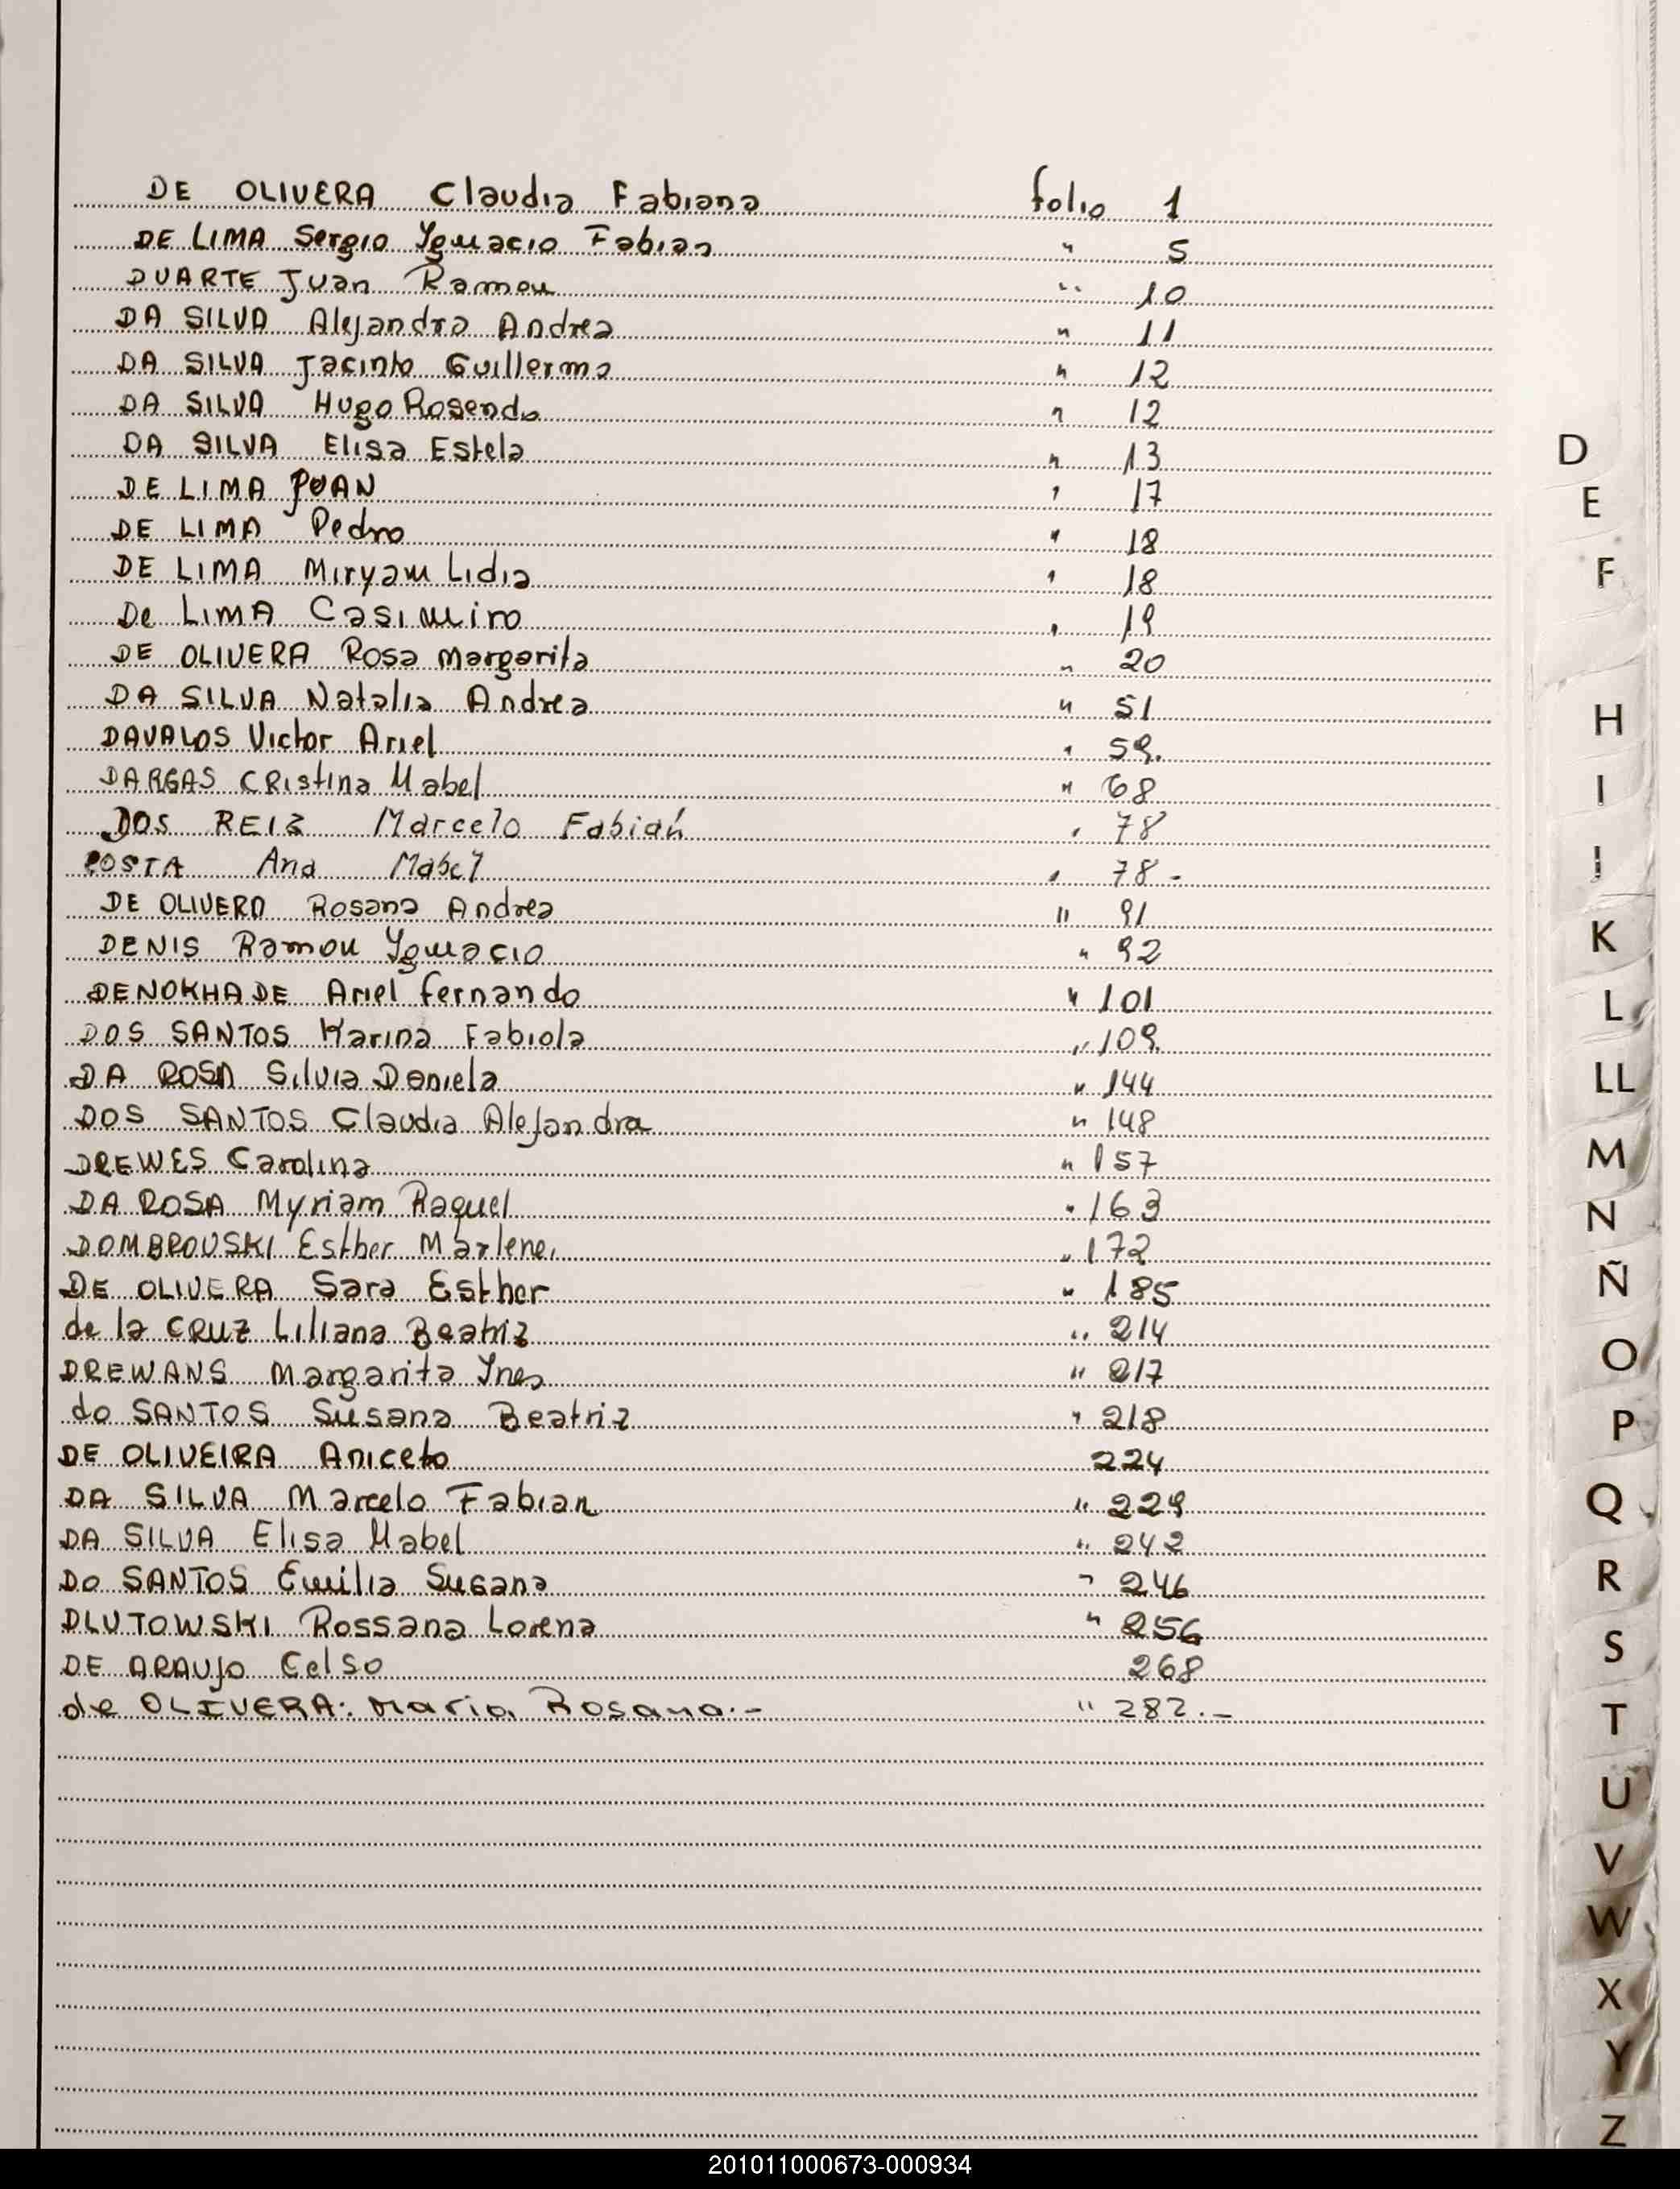 DE OLIVERA Claudia Fabiana folio 1
DE LIMA Sergio Ygnacio Fabian " 5
DUARTE Juan Ramon " 10
DA SILVA Alejandra Andrea " 11
DA SILVA Jacinto Guillermo " 12
DA SILVA Hugo Rosendo " 12
DA SILVA Elisa Estela " 13
DE LIMA JUAN " 17
DE LIMA Pedro " 18
DE LIMA Miryam Lidia " 18
De LIMA Casimiro " 19
DE OLIVERA Rosa Margarita " 20
DA SILVA Natalia Andrea " 51
DAVALOS Victor Ariel " 59.
DARGAS CRistina Mabel " 68
DOS REIS Marcelo Fabián " 78
COSTA Ana Mabel " 78-
DE OLIVERA Rosana Andrea " 91
DENIS Ramon Ygnacio " 92
DENOKHADE Ariel fernando " 101
DOS SANTOS Karina Fabiola " 109.
DA ROSA Silvia Daniela " 144
DOS SANTOS Claudia Alejandra " 148
DREWES Carolina " 157
DA ROSA Myriam Raquel " 163
DOMBROVSKI Esther Marlene. " 172
DE OLIVERA Sara Esther " 185
de la CRUZ Liliana Beatriz " 214
DREWANS Margarita Ynes " 217
do SANTOS Susana Beatriz " 218
DE OLIVEIRA Aniceto 224
DA SILVA Marcelo Fabian " 229
DA SILVA Elisa Mabel " 242
DO SANTOS Emilia Susana " 246
DLUTOWSKI Rossana Lorena " 256
DE ARAUJO Celso 268
de OLIVERA: Maria Rosana.- " 282.-
D
E
F
H
I
J
K
L
LL
M
N
Ñ
O
P
Q
R
S
T
U
V
W
X
Y
Z
201011000673-000934